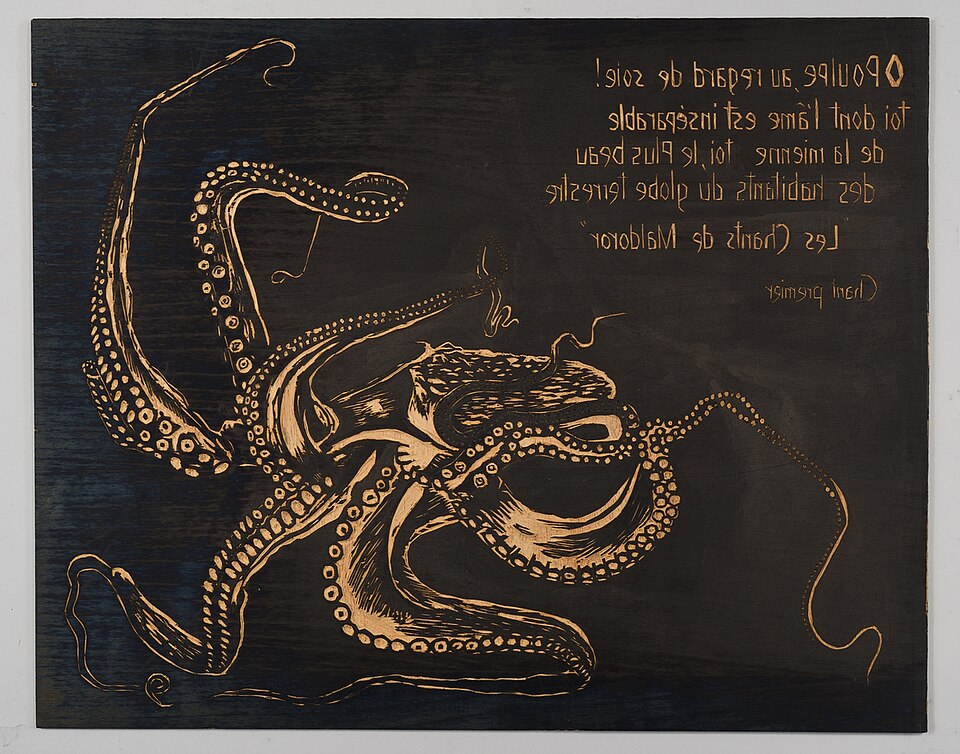 O Poulpe, au regard de soie!
toi dont l'âme est inséparable
de la mienne, toi, le Plus beau
des habitants du globe terrestre
"Les Chants de Maldoror"
Chant premier